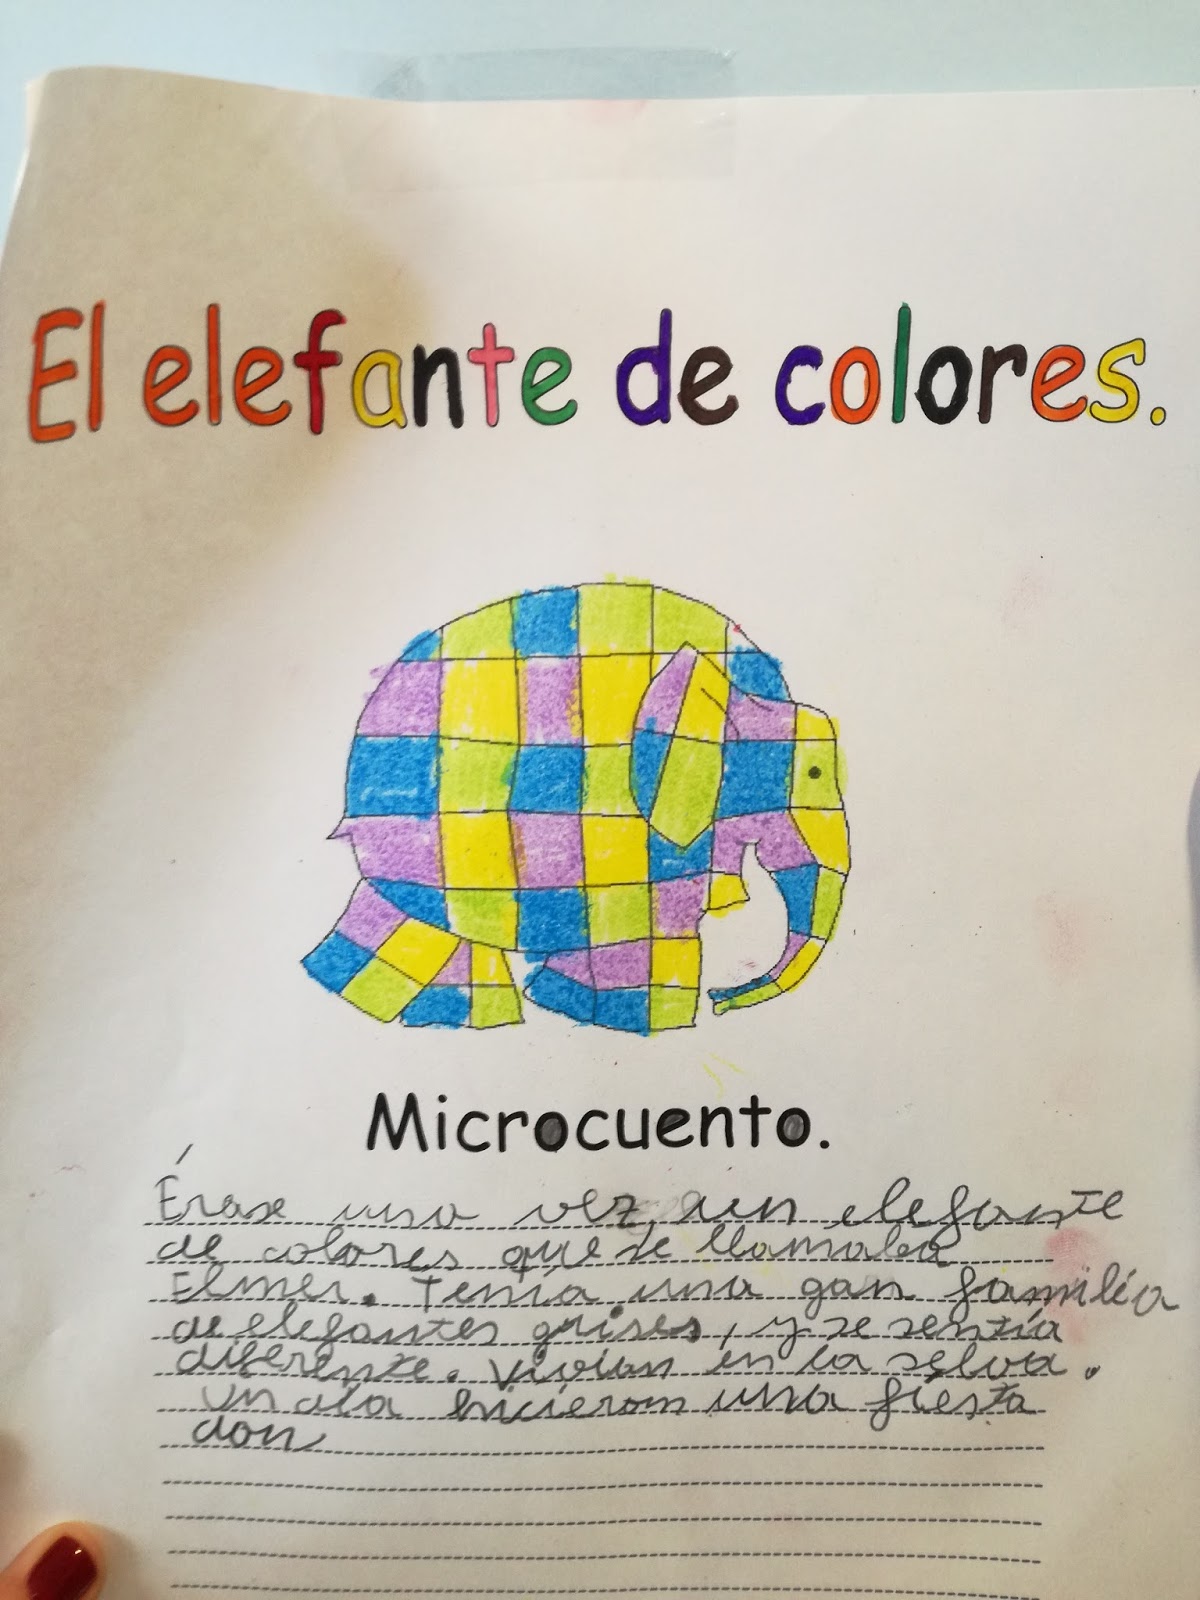 El elefante de colores.
Microcuento.
Érase una vez, un elefante
de colores que se llamaba
Elmer. Tenía una gan familia
de elefantes grises, y se sentía
diferente. Vivían en la selva.
Un día hicieron una fiesta
don